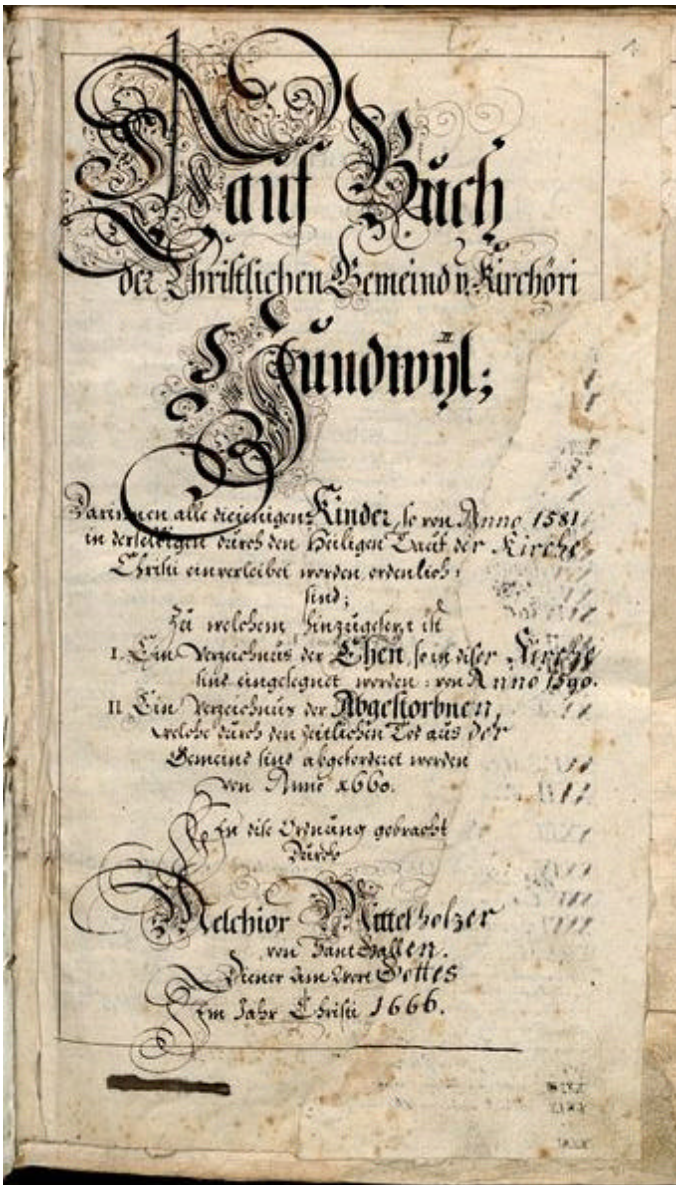 Tauf Buch
der Christlichen Gemeind u. Kirchöri
Hundwÿl;
Darinnen alle diejenigen Kinder, so von Anno 1581
in derselbigen durch den Heiligen Tauf der Kirche
Christi einverleibet worden ordenlich
sind;
Zu welchem hinzugesetzt ist
I. Ein Verzeichnus der Ehen, so in diser Kirche
sind eingesegnet worden: von Anno 1590.
II. Ein Verzeichnus der Abgestorbnen,
welche durch den zeitlichen Tod aus der
Gemeind sind abgeforderet worden
von Anno 1660.
In dise Ordnung gebracht
Durch
Melchior Mittelholzer
von Sant Gallen.
Diener am Wort Gottes
Im Jahr Christi 1666.